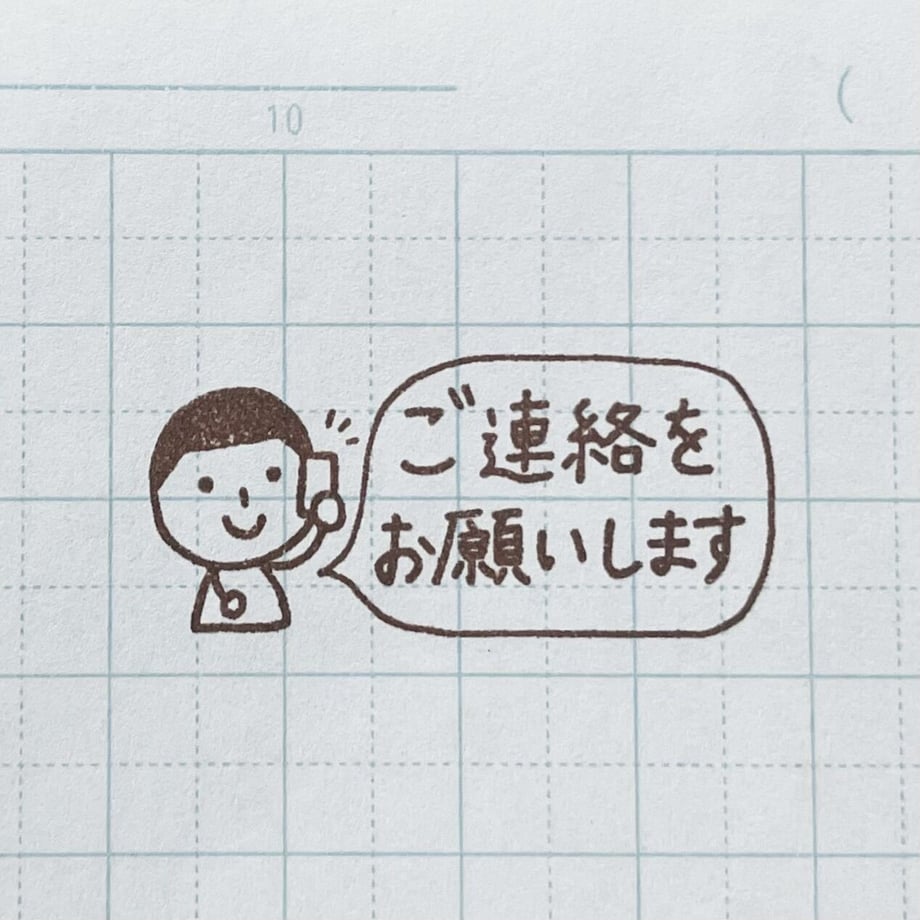 10
(
ご連絡を
お願いします